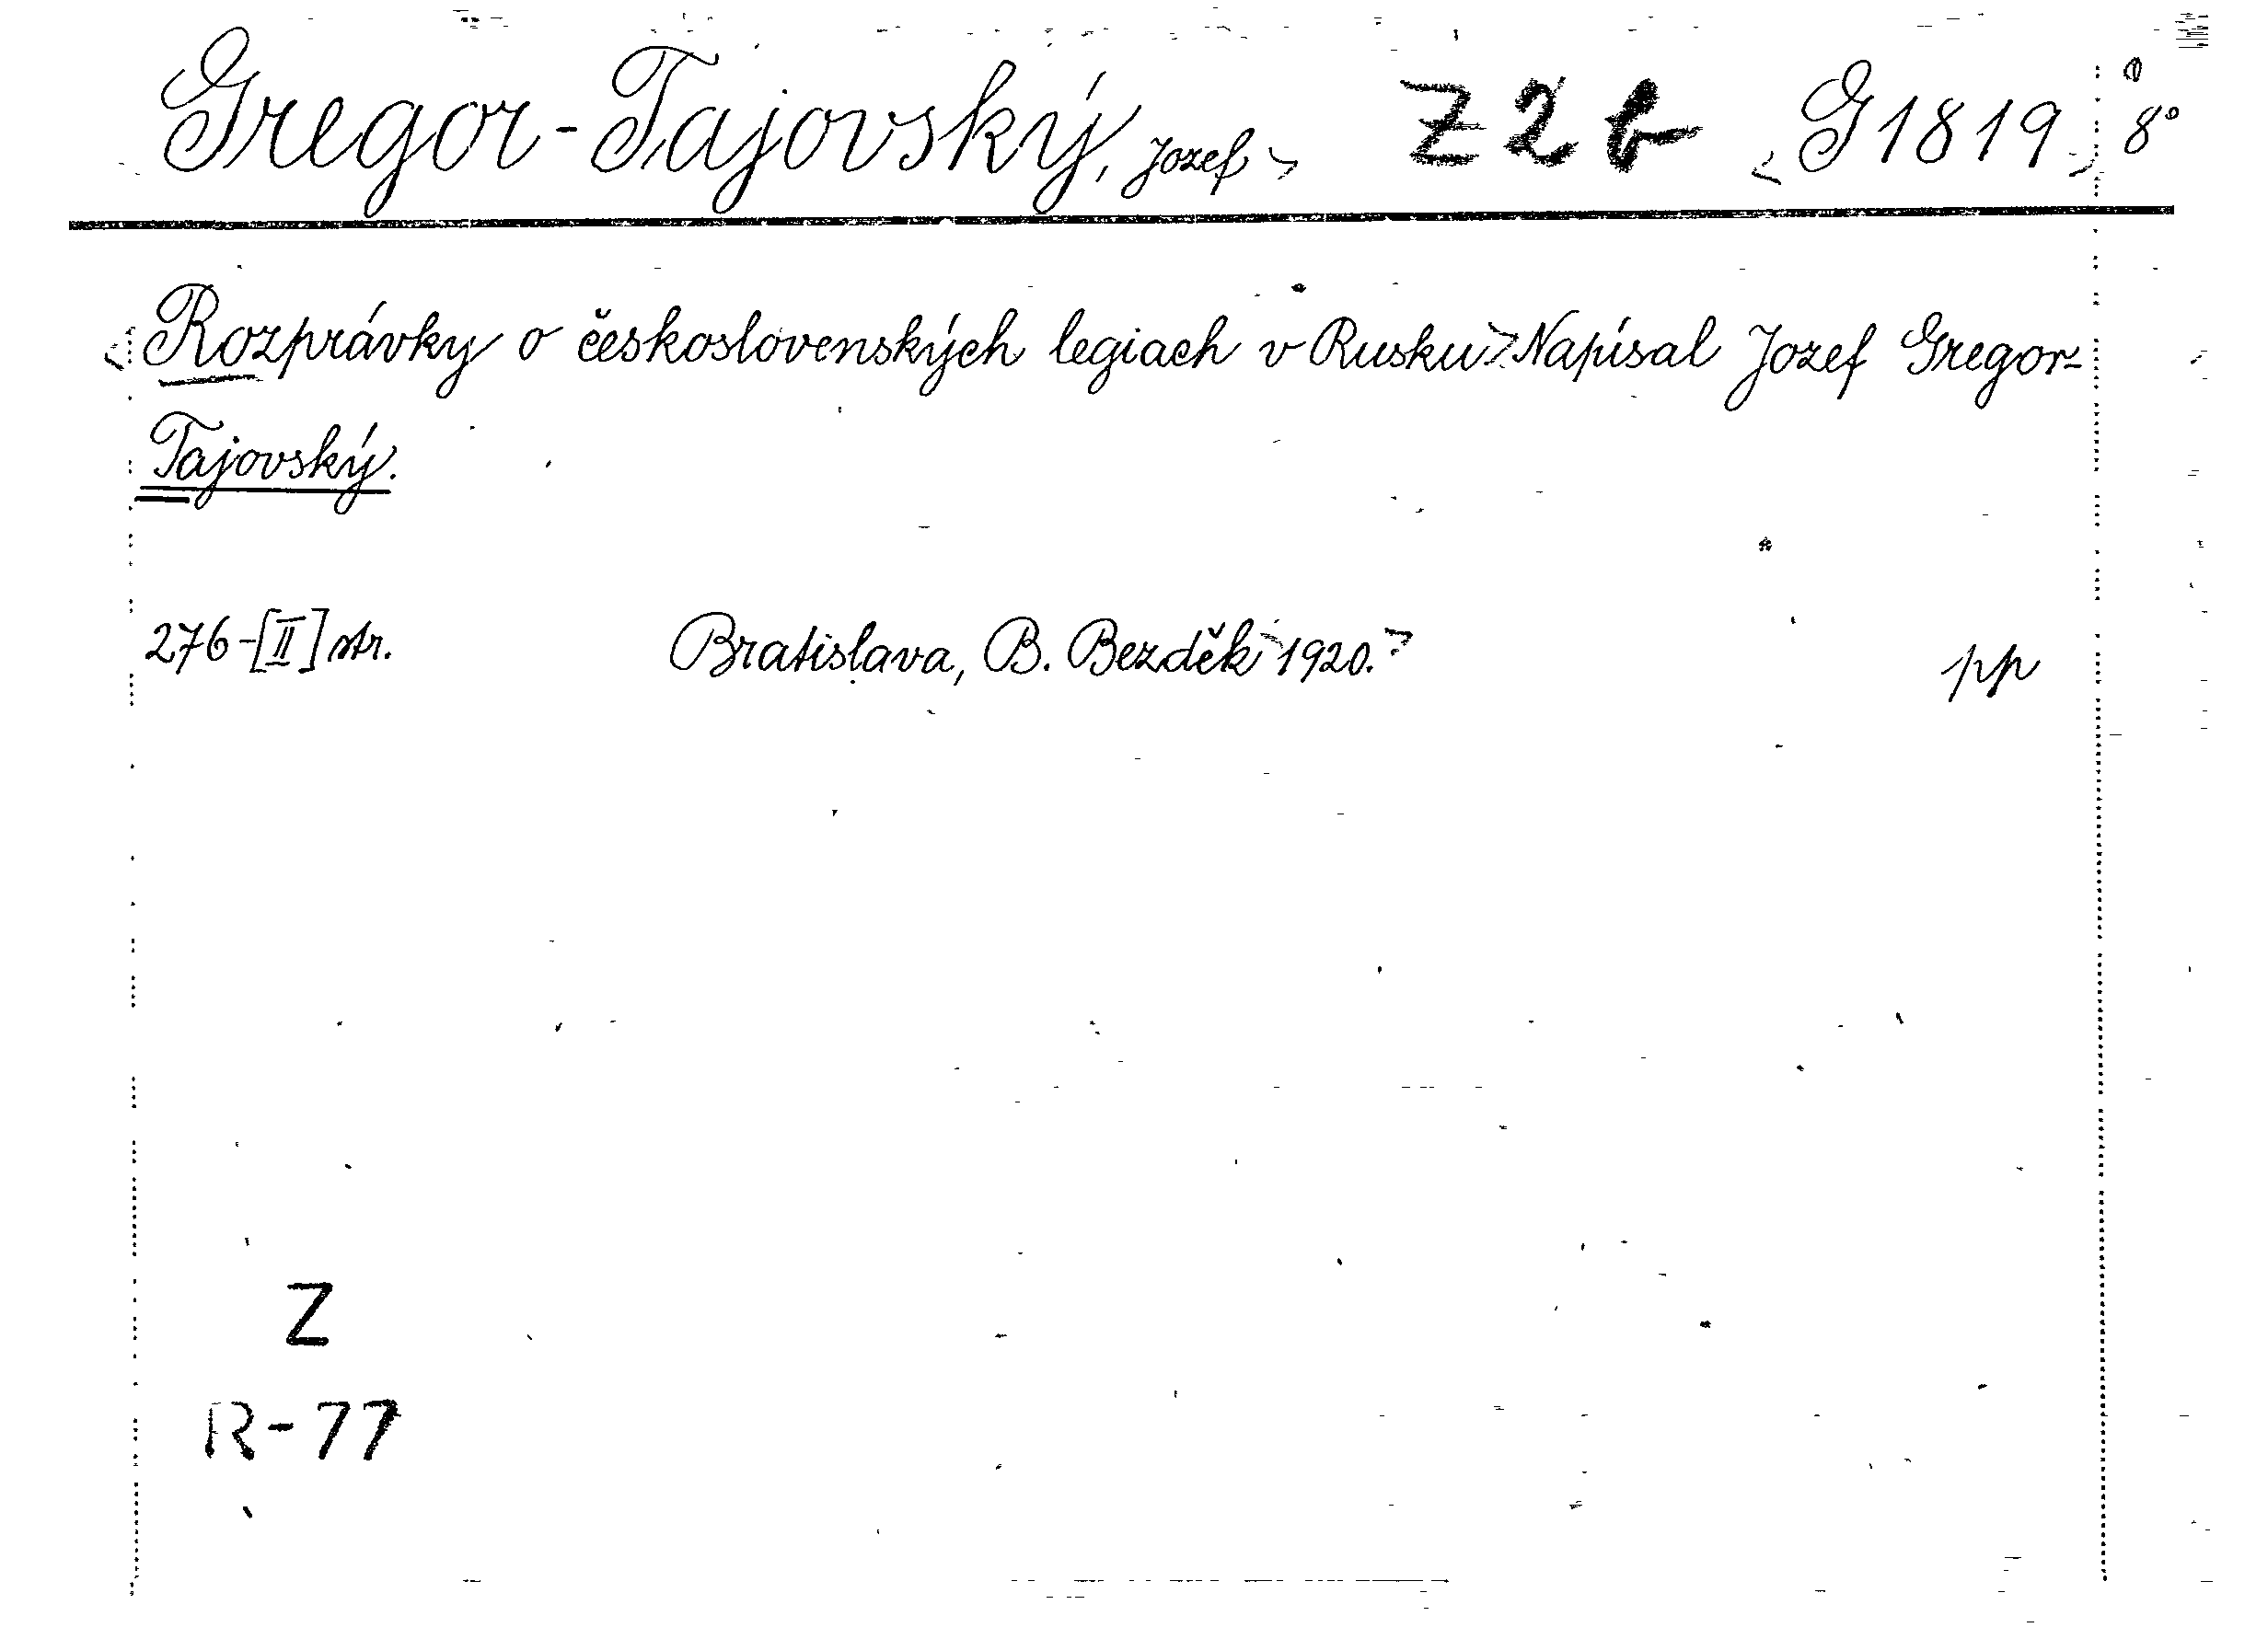 Gregor-Tajovský, Jozef> Z2b <G1819> 8°
<Rozprávky o československých legiach v Rusku.> Napísal Jozef Gregor-
Tajovský.
276-[II] str. Bratislava, B. Bezděk <1920.> pp
Z
R-77